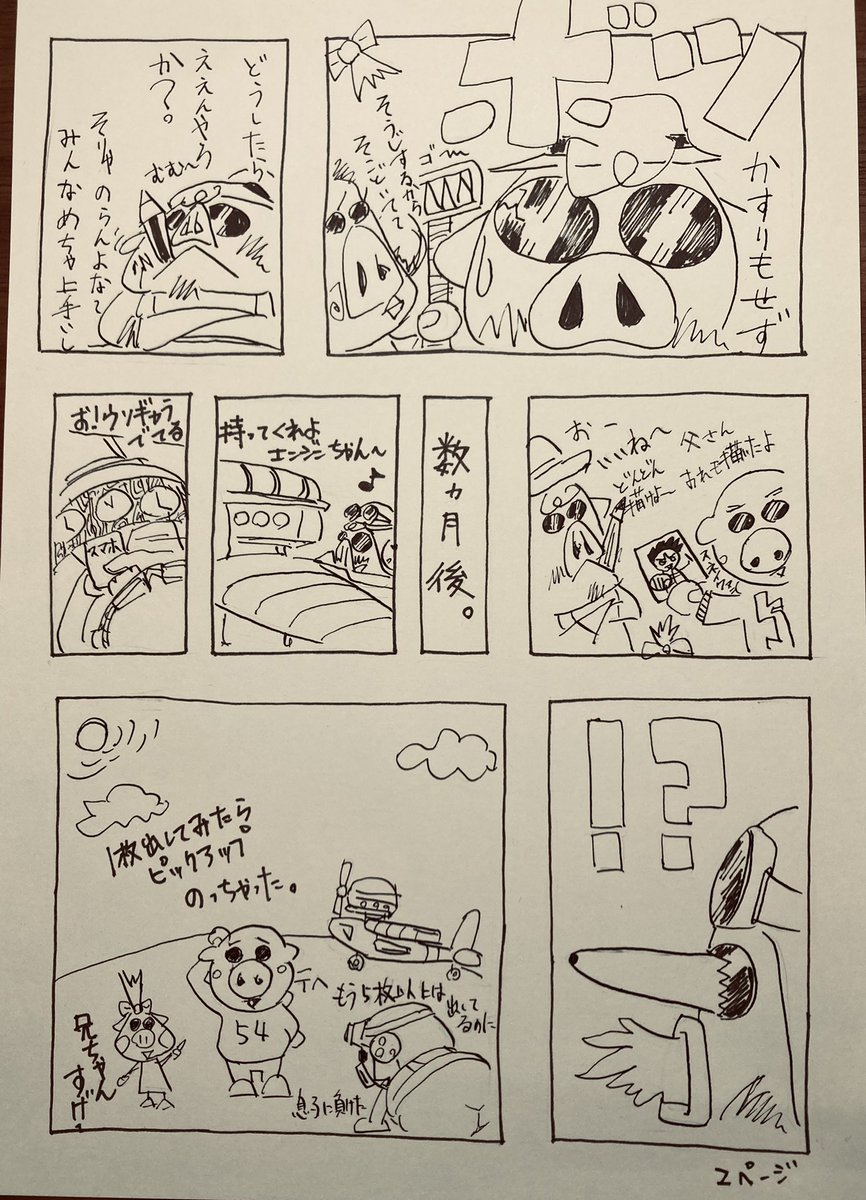 ボツ
かすりもせず
ゴー
そうじするから
そこどいてて
どうしたら
ええんやろ
か？。
むむ〜
そりゃのらんよなて
みんなめちゃ上手いし
父さん
おれも描いたよ
おー
いいね〜
どんどん
描けよ〜
数ヵ月後。
持ってくれよ
エンジンちゃん〜
♪
お！ウソギャラ
でてる
スマホ
！？
1枚出してみたら
ピックアップ
のっちゃった。
テヘ
54
兄ちゃん
すげー
もう5枚以上は
出して
るのに
息子に負けた
2ページ